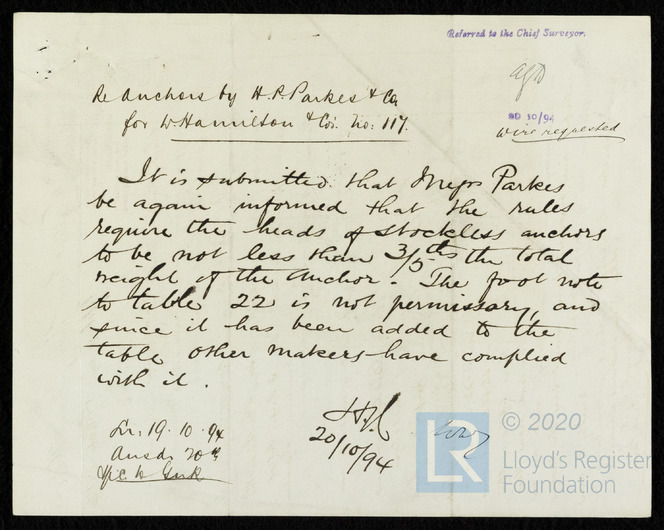 Referred to the Chief Surveyor.
Re Anchors by H.P. Parkes & Co
for W Hamilton & Cos. No: 117.
20 10/94
wire requested
It is submitted that Messrs Parkes
be again informed that the rules
require the heads of stockless anchors
to be not less than 3/5ths the total
weight of the anchor. The foot note
to table 22 is not permissary, and
since it has been added to the
table other makers have complied
with it.
20/10/94
Lr. 19.10.94
Ansd. 20th
LR
© 2020
Lloyd's Register
Foundation